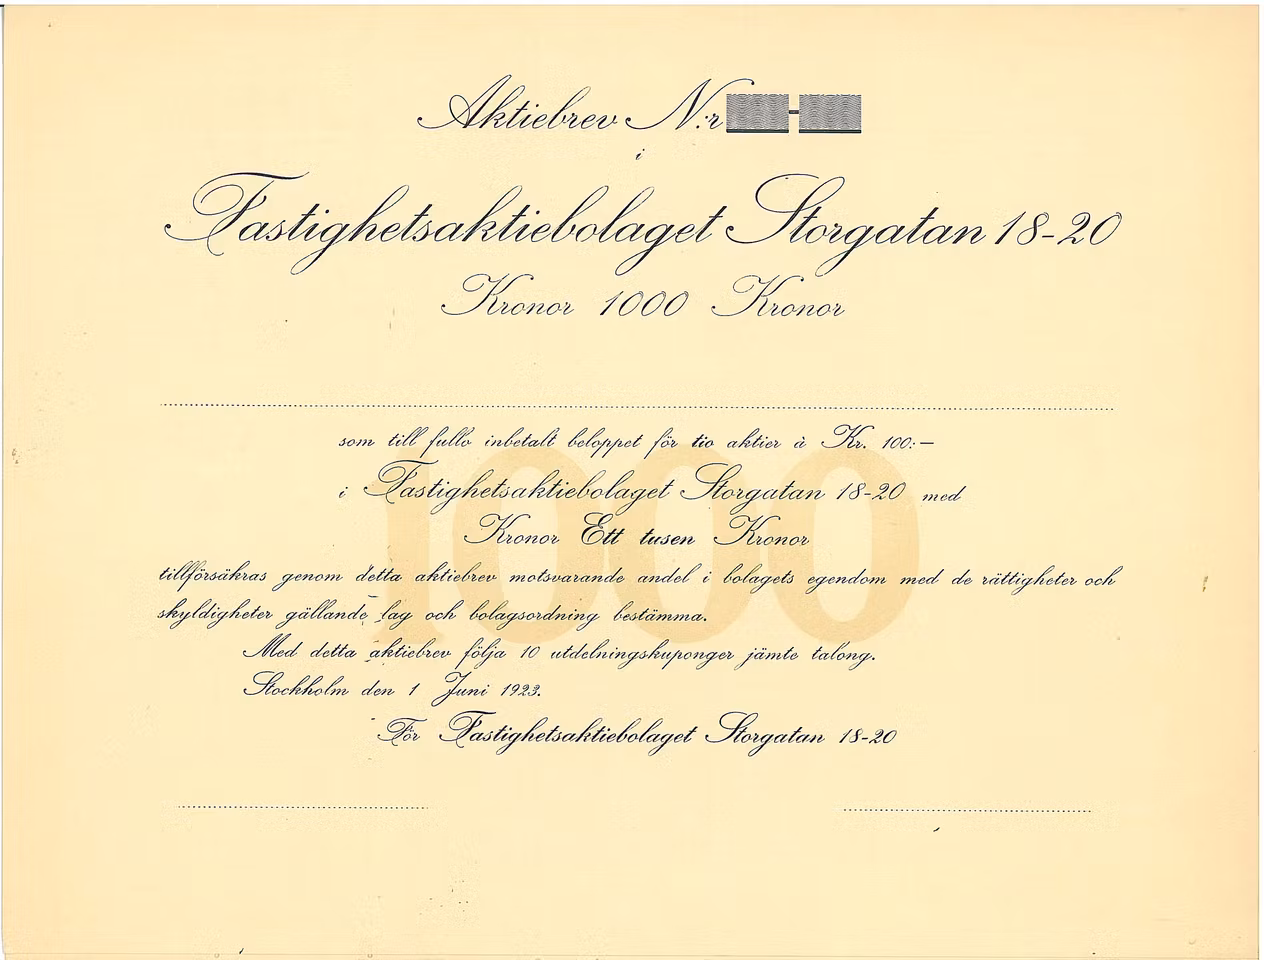 Aktiebrev N:r -
i
Fastighetsaktiebolaget Storgatan 18-20
Kronor 1000 Kronor
som till fullo inbetalt beloppet för tio aktier à Kr. 100:—
i Fastighetsaktiebolaget Storgatan 18-20 med
Kronor Ett tusen Kronor
1000
tillförsäkras genom detta aktiebrev motsvarande andel i bolagets egendom med de rättigheter och
skyldigheter gällande lag och bolagsordning bestämma.
Med detta aktiebrev följa 10 utdelningskuponger jämte talong.
Stockholm den 1 Juni 1923.
För Fastighetsaktiebolaget Storgatan 18-20